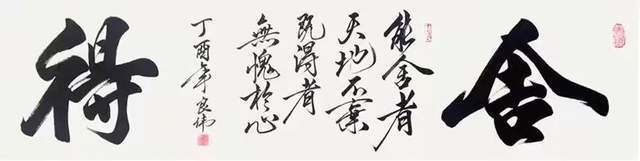 舍
能舍者
天地不棄
既得者
無愧於心
丁酉年良沛
得